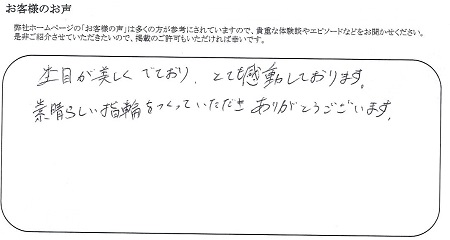 お客様のお声
弊社ホームページの「お客様の声」は多くの方が参考にされていますので、貴重な体験談やエピソードなどをお聞かせください。
是非ご紹介させていただきたいので、掲載のご許可もいただければ幸いです。
杢目が美しくでており、とても感動しております。
素晴らしい指輪をつくっていただきありがとうございます。